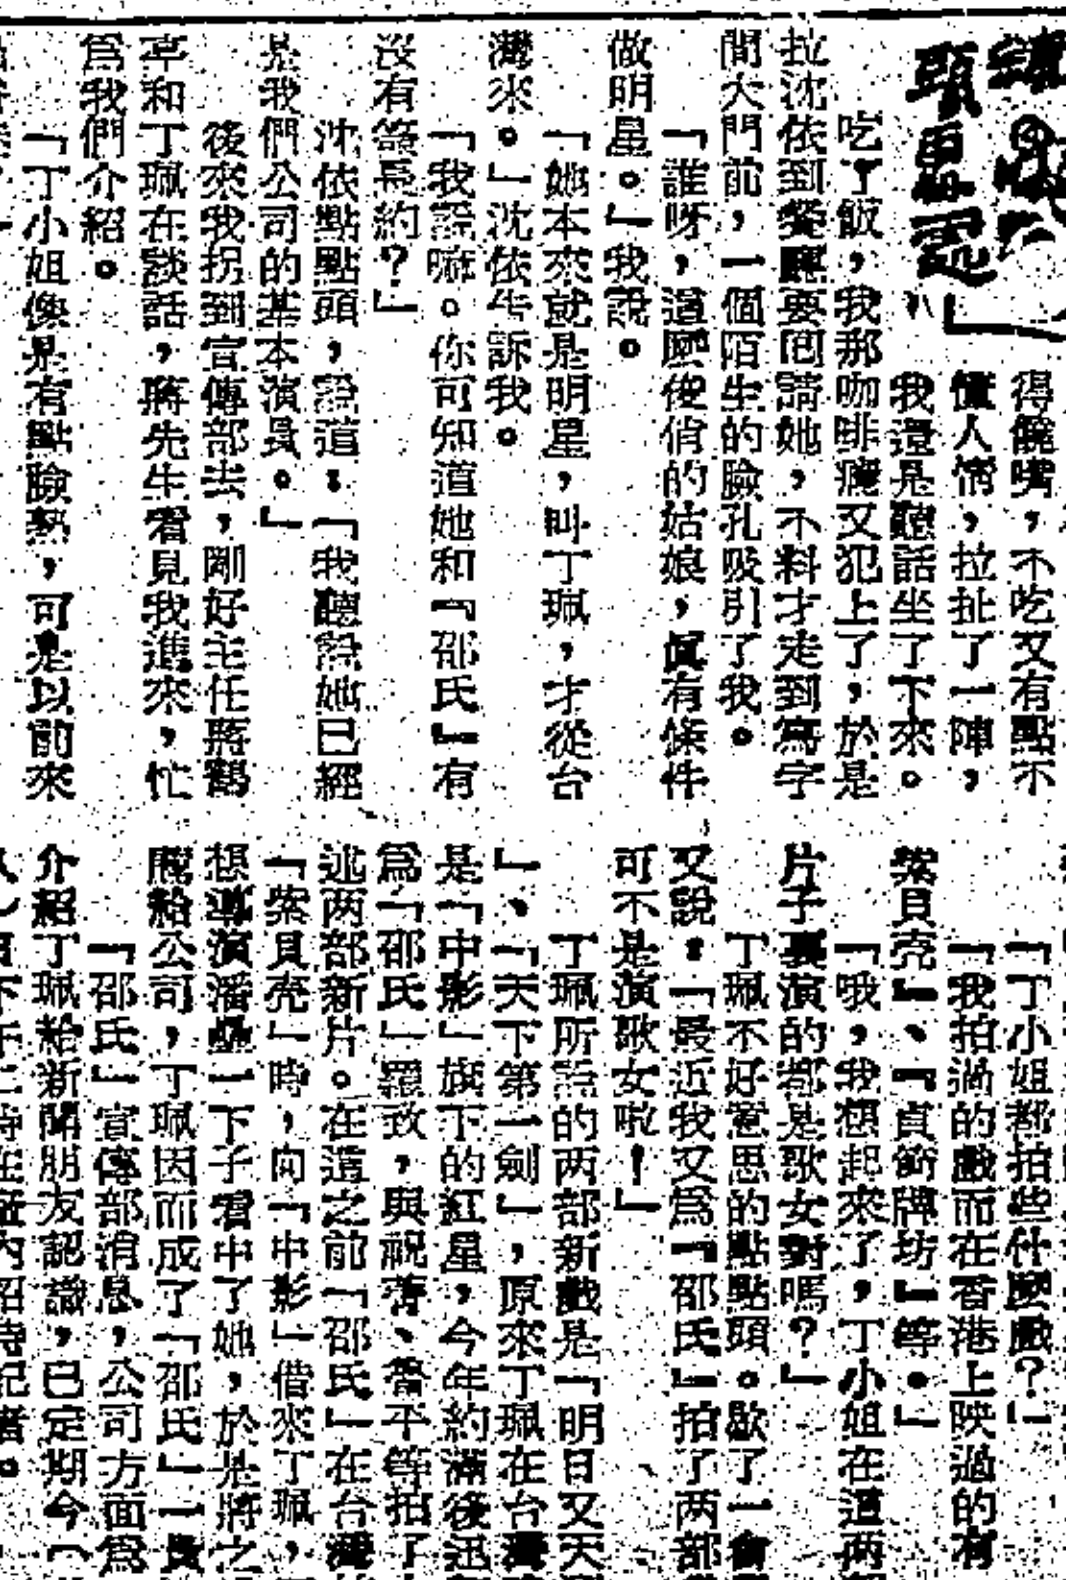 得饞嘴，不吃又有點不
懂人情，拉扯了一陣，
我還是聽話坐了下來。
吃了飯，我那咖啡癮又犯上了，於是
拉沈依到餐廳要回請她，不料才走到寫字
間大門前，一個陌生的臉孔吸引了我。
「誰呀，這麼俊俏的姑娘，眞有條件
做明星。」我說。
「她本來就是明星，叫丁珮，才從台
灣來。」沈依告訴我。
「我說嘛。你可知道她和『邵氏』有
沒有簽長約？」
沈依點點頭，說道：「我聽說她已經
是我們公司的基本演員。」
後來我拐到宣傳部去，剛好主任蔣鶴
亭和丁珮在談話，蔣先生看見我進來，忙
爲我們介紹。
「丁小姐像是有點臉熱，可是以前來
「丁小姐都拍些什麼戲？」
「我拍過的戲而在香港上映過的有
紫貝壳』、『貞節牌坊』等。」
「哦，我想起來了，丁小姐在這两
片子裏演的都是歌女對嗎？」
丁珮不好意思的點點頭。歇了一會
又說：「最近我又爲『邵氏』拍了两部
可不是演歌女啦！」
丁珮所說的两部新戲是「明日又天
」、「天下第一劍」，原來丁珮在台灣
是「中影」旗下的紅星，今年約滿後迅
爲「邵氏」羅致，與祝菁、魯平等拍了
述两部新片。在這之前「邵氏」在台灣
「紫貝壳」時，向「中影」借來丁珮，
想導演潘壘一下子看中了她，於是將之
薦給公司，丁珮因而成了「邵氏」一員
「邵氏」宣傳部消息，公司方面爲
介紹丁珮給新聞朋友認識，已定期今（
下午二時在廠內招待記者。